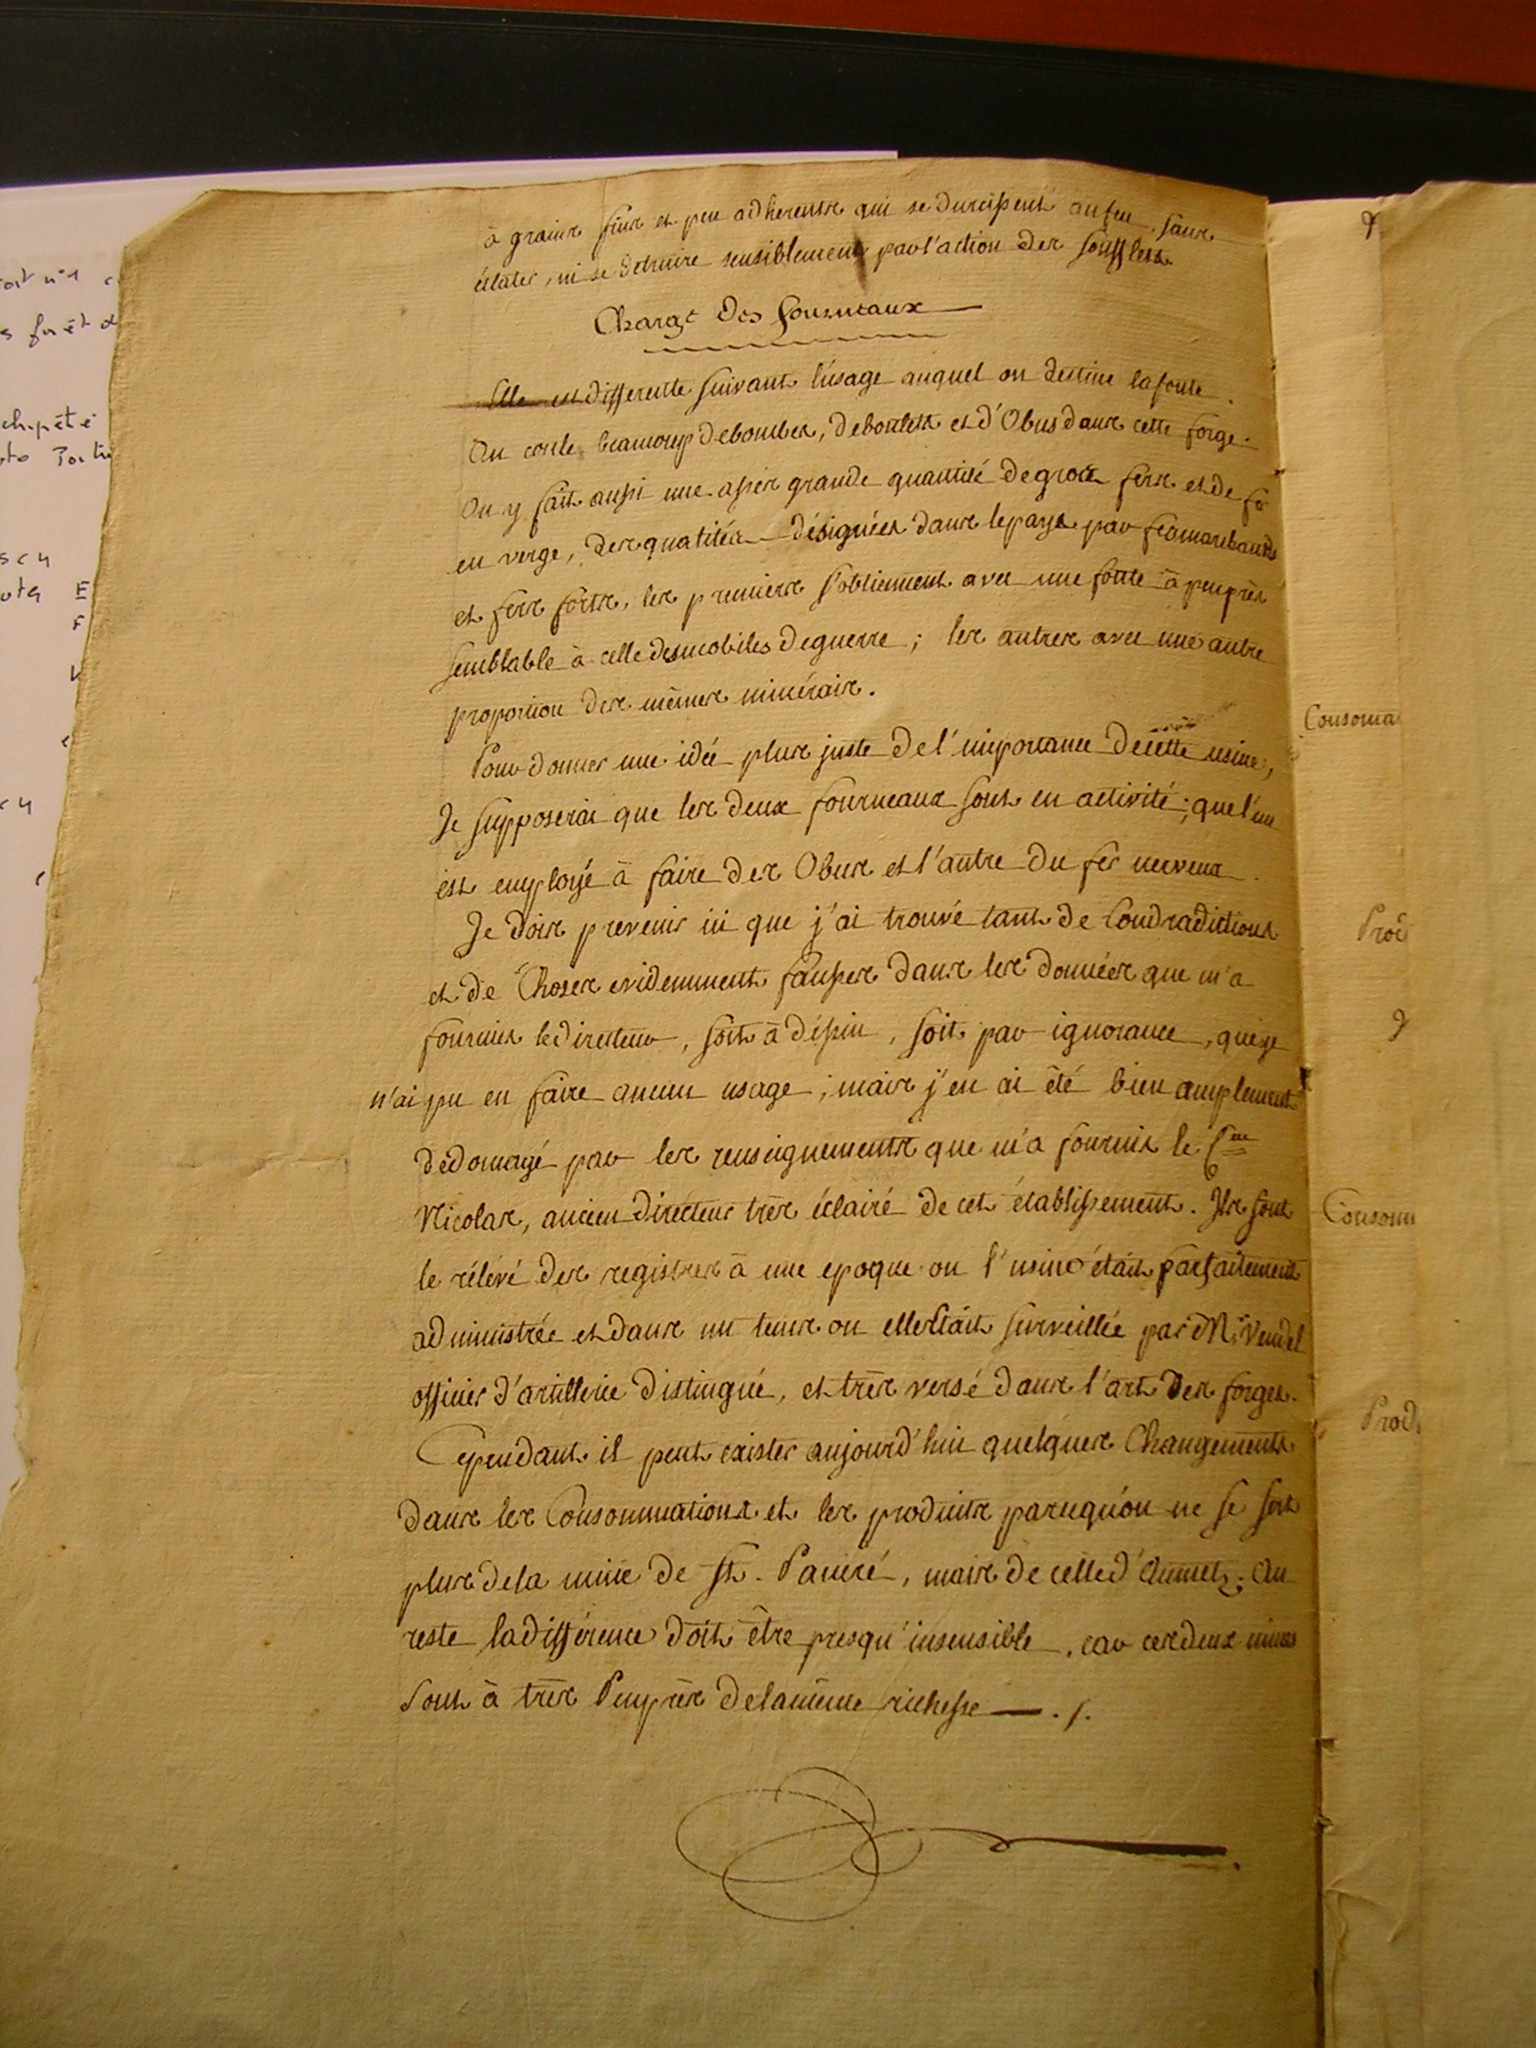 à grains fins et peu adherents qui se durcissent au feu, sans
éclater, ni se detruire sensiblement par l'action des soufflets.
Charge des fourneaux
Elle est differente suivant l'usage auquel on destine la fonte.
On coule beaucoup de bombes, de boulets et d'Obus dans cette forge.
On y fait aussi une assés grande quantité de gros fers et de fer
en verge, des qualités désignées dans le pays par fers marchands
et fers forts, les premiers s'obtiennent avec une fonte à peu près
semblable à celle des mobiles de guerre; les autres avec une autre
proportion des mêmes minérais.
Pour donner une idée plus juste de l'importance de cette usine,
Je supposerai que les deux fourneaux sont en activité; que l'un
est employé à faire des Obus et l'autre du fer nerveux.
Je dois prevenir ici que j'ai trouvé tant de Condradictions
et de Choses evidemment fausses dans les données que m'a
fournies le directeur, soit à dessin, soit par ignorance, que je
n'ai pu en faire aucun usage; mais j'en ai été bien amplement
dédomagé par les renseignements que m'a fournis le
Nicolas, ancien directeur très éclairé de cet établissement. Ils sont
le rélévé des registres à une epoque ou l'usine était parfaitement
administrée et dans un tems ou elle était surveillée par Mr Vendel
officier d'artillerie distingué, et très versé dans l'art des forges.
Cependant il peut exister aujourd'hui quelques Changements
dans les Consommations et les produits parcequ'on ne se sert
plus de la mine de St. Pancré, mais de celle d'Aumetz; Au
reste la différence doit être presqu'insensible, car ces deux mines
sont à très Peu près de la même richesse ./.
Consoma
Prod
Consom
Prod